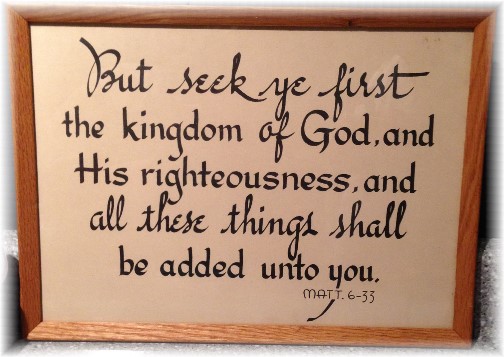 But seek ye first
the kingdom of God, and
His righteousness, and
all these things shall
be added unto you.
MATT. 6-33